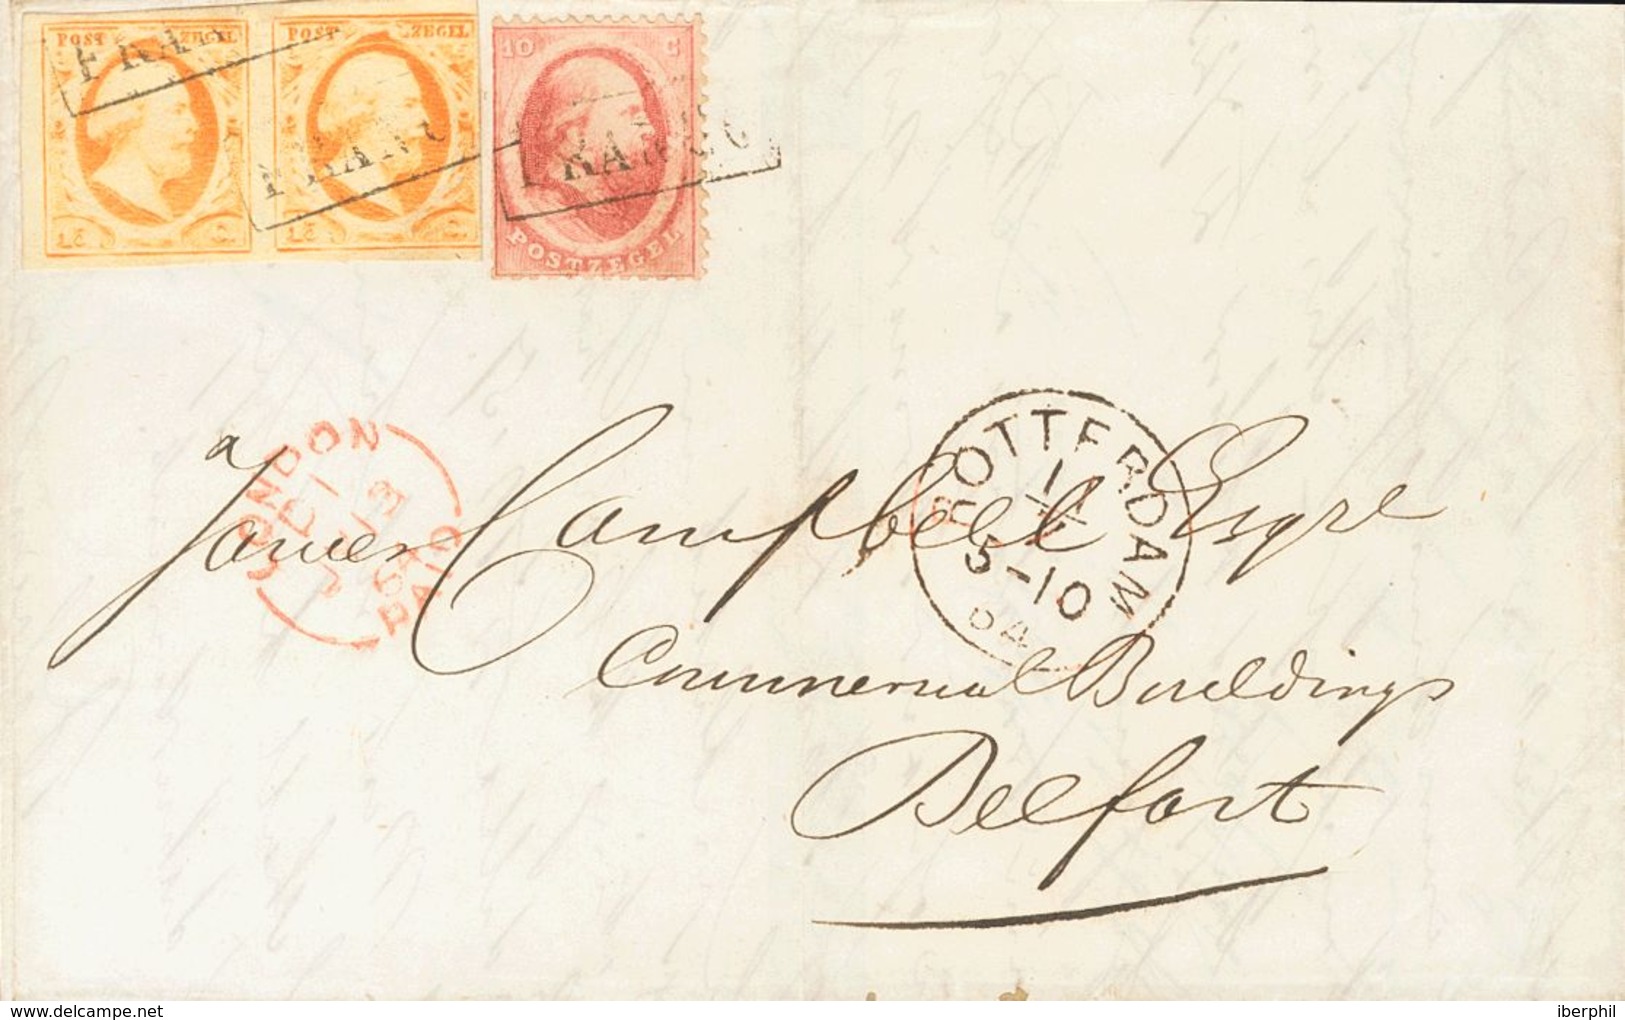 POST ZEGEL POST ZEGEL 10 C
FRAN
FRANCO
FRANCO
15 C. 15 C.
POSTZEGEL
LONDON
PAID
ROTTERDAM
5-10
James Campbell Esqre
Commercial Buildings
Belfast
iberphil